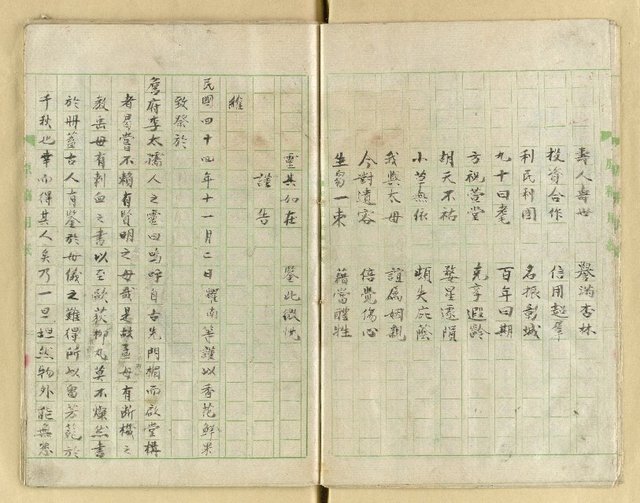 壽人壽母　譽滿杏林
投資合作　信用超羣
利民利國　名振彰城
九十曰耄　百年曰期
方祝萱堂　克享遐齡
胡天不祐　婺星遽隕
小草無依　頓失庇蔭
我與太母　誼屬姻親
今對遺容　倍覺傷心
生芻一束　藉當醴牲
靈其如在　鑒此微忱
謹告
維
民國四十四年十一月二日羅南等謹以香花鮮果
致祭於
詹府李太孺人之靈曰嗚呼自古先門楣而啟堂構
者曷嘗不賴有賢明之母哉是故孟母有斷機之
教岳母有刺血之書以至歐荻柳丸莫不燦然書
於冊蓋古人有鑒於母儀之難得所以留芳範於
千秋也幸而得其人矣乃一旦超然物外能無悲